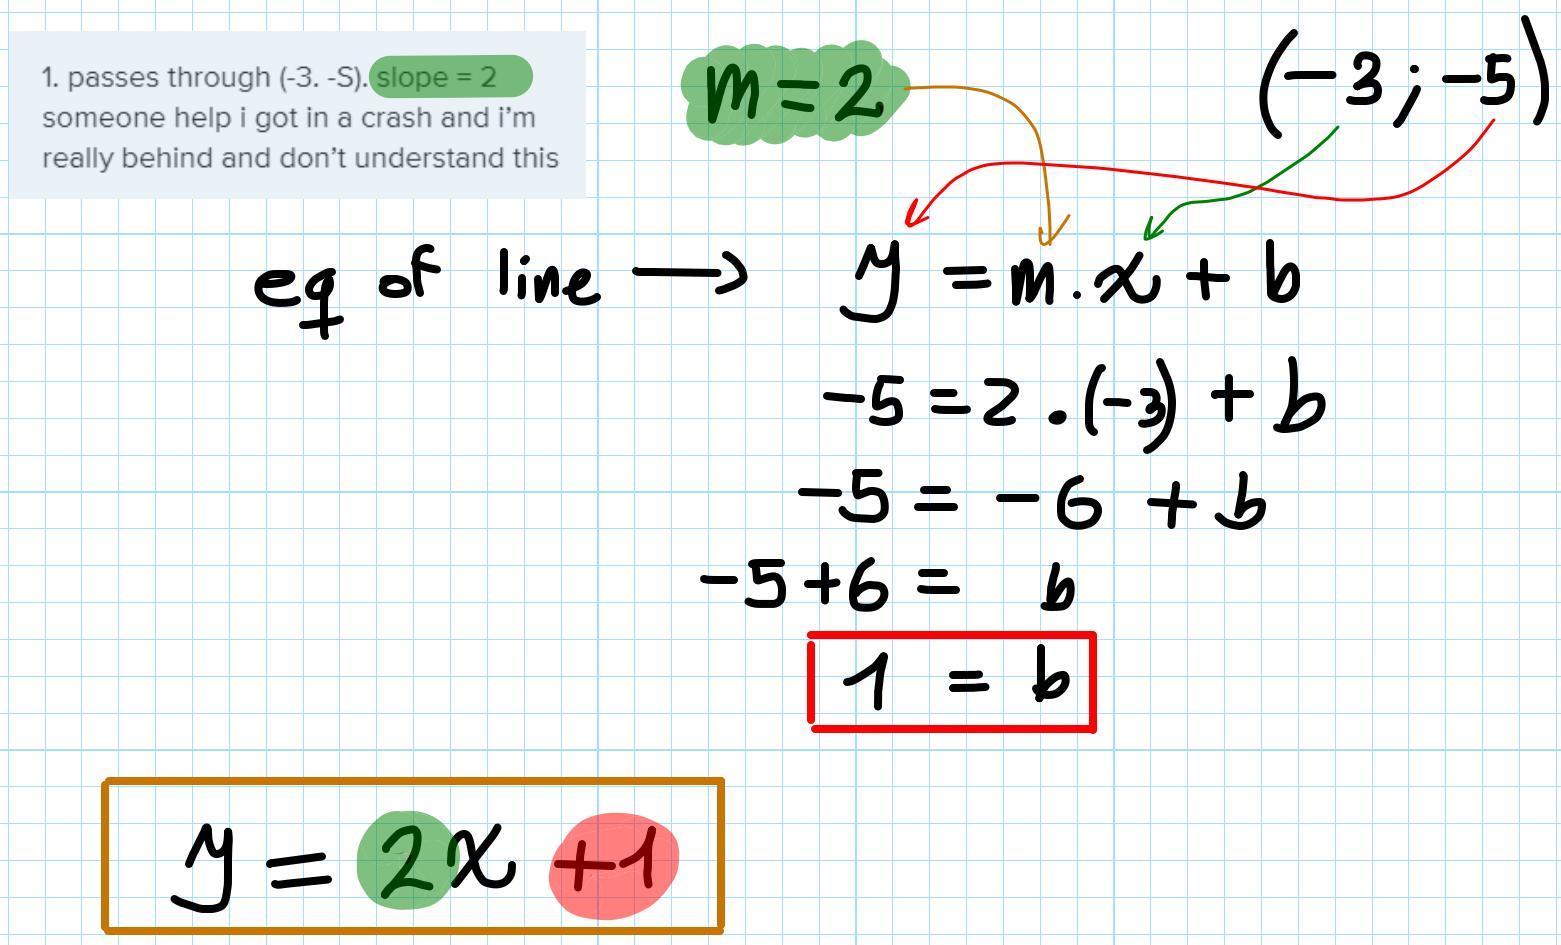 1. passes through (-3. -S). slope = 2
someone help i got in a crash and i'm
really behind and don't understand this
m=2
(-3;-5)
eq of line → y = m.x + b
-5=2.(-3)+b
-5 = -6 + b
-5+6 = b
1 = b
y = 2x +1